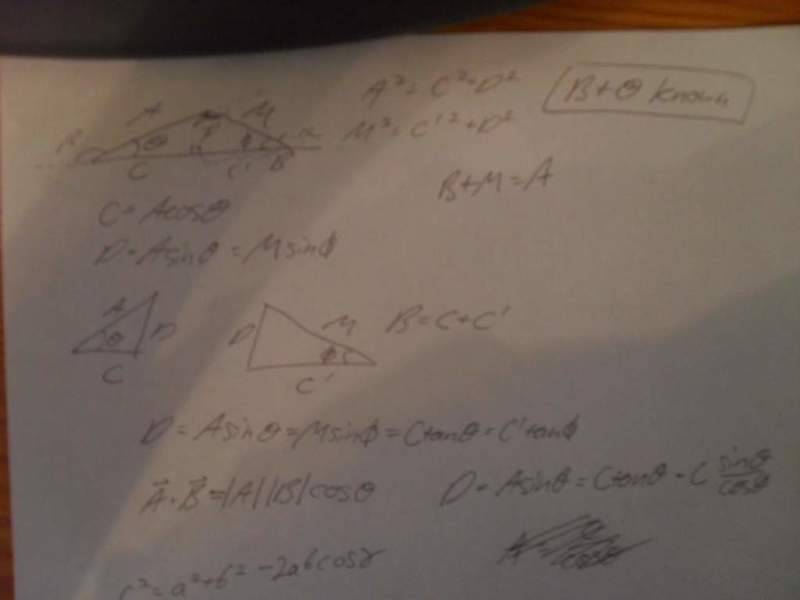 A M
θ D φ α
C C' B
A² = C² + D²
M² = C'² + D²
B + θ known
B + M = A
C = Acosθ
D = Asinθ = Msinφ
A θ D C
D M φ C'
B = C + C'
D = Asinθ = Msinφ = Ctanθ = C'tanφ
A⃗ · B⃗ = |A||B|cosθ
D = Asinθ = Ctanθ = C sinθ/cosθ
c² = a² + b² - 2abcosγ